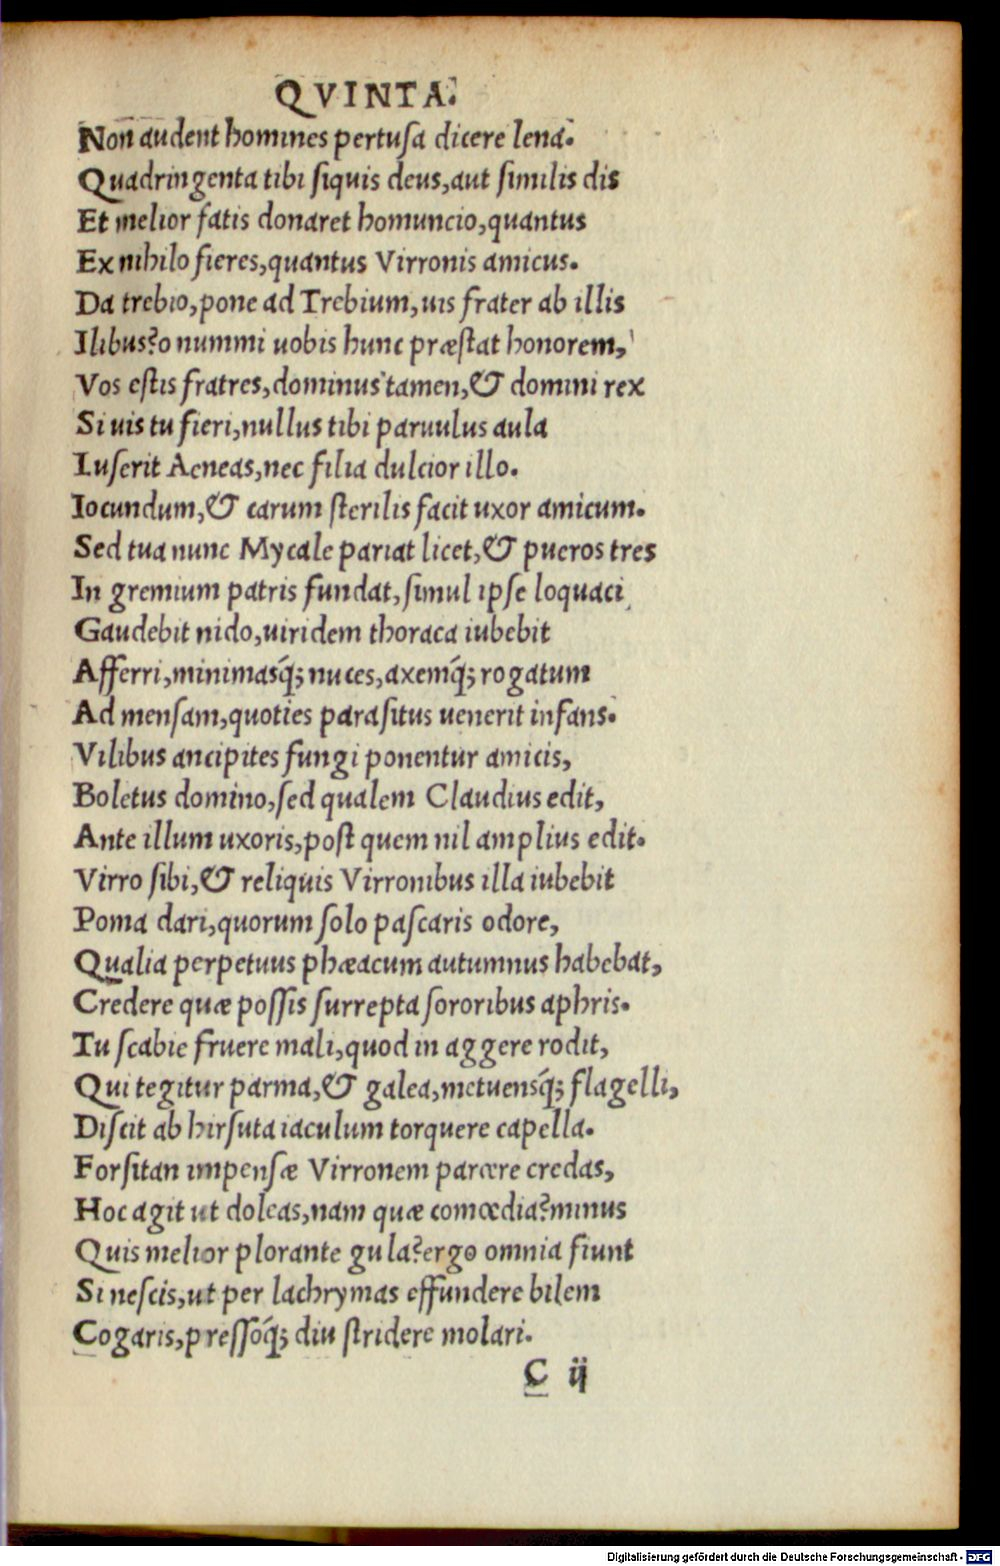 QVINTA.
Non audent homines pertuſa dicere lena.
Quadringenta tibi ſiquis deus, aut ſimilis dis
Et melior fatis donaret homuncio, quantus
Ex nihilo fieres, quantus Virronis amicus.
Da trebio, pone ad Trebium, uis frater ab illis
Ilibus? o nummi uobis hunc præſtat honorem,
Vos eſtis fratres, dominus tamen, & domini rex
Si uis tu fieri, nullus tibi paruulus aula
Luſerit Aeneas, nec filia dulcior illo.
Iocundum, & carum ſterilis facit uxor amicum.
Sed tua nunc Mycale pariat licet, & pueros tres
In gremium patris fundat, ſimul ipſe loquaci
Gaudebit nido, uiridem thoraca iubebit
Afferri, minimasq́; nuces, axemq́; rogatum
Ad menſam, quoties paraſitus uenerit infans.
Vilibus ancipites fungi ponentur amicis,
Boletus domino, ſed qualem Claudius edit,
Ante illum uxoris, poſt quem nil amplius edit.
Virro ſibi, & reliquis Virronibus illa iubebit
Poma dari, quorum ſolo paſcaris odore,
Qualia perpetuus phæacum autumnus habebat,
Credere quæ poſſis ſurrepta ſororibus aphris.
Tu ſcabie fruere mali, quod in aggere rodit,
Qui tegitur parma, & galea, metuensq́; flagelli,
Diſcit ab hirſuta iaculum torquere capella.
Forſitan impenſæ Virronem parcere credas,
Hoc agit ut doleas, nam quæ comœdia? minus
Quis melior plorante gula? ergo omnia fiunt
Si neſcis, ut per lachrymas effundere bilem
Cogaris, preſſoq́; diu ſtridere molari.
C ij
Digitalisierung gefördert durch die Deutsche Forschungsgemeinschaft - DFG